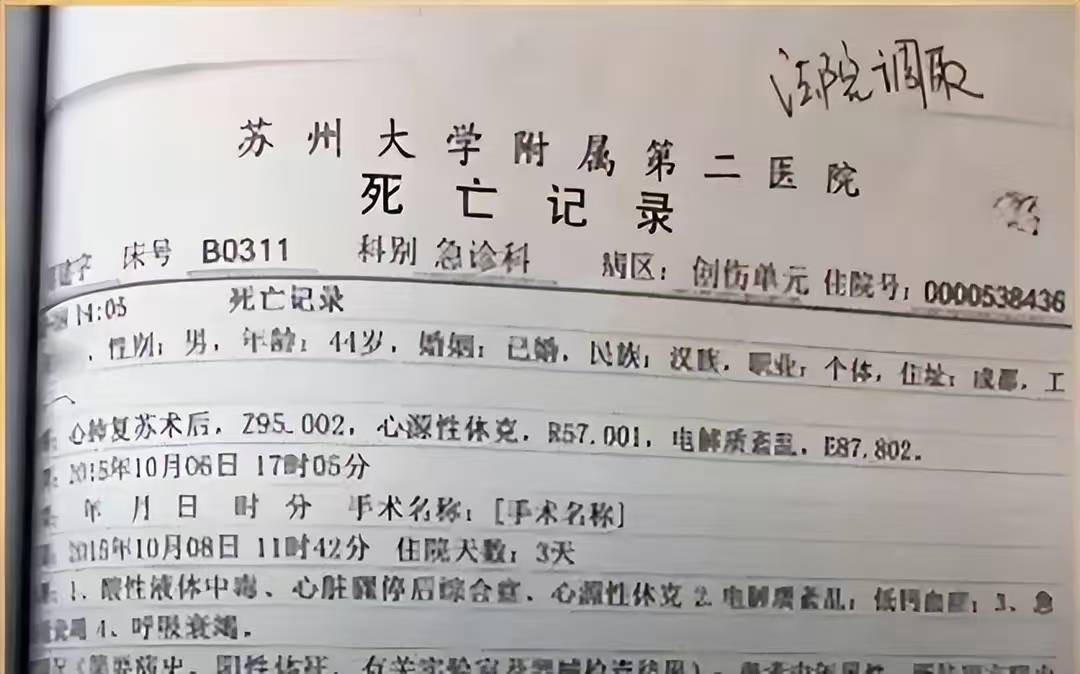 法院调取
苏州大学附属第二医院
死亡记录
床号 B0311 科别 急诊科 病区：创伤单元 住院号：0000538436
14:05 死亡记录
，性别：男，年龄：44岁，婚姻：已婚，民族：汉族，职业：个体，住址：成都，工
心肺复苏术后，Z95.002，心源性休克，R57.001，电解质紊乱，E87.802。
2015年10月06日 17时05分
年 月 日 时 分 手术名称：[手术名称]
2015年10月08日 11时42分 住院天数：3天
1、酸性液体中毒、心脏骤停后综合症、心源性休克 2、电解质紊乱：低钙血症；3、急
4、呼吸衰竭。